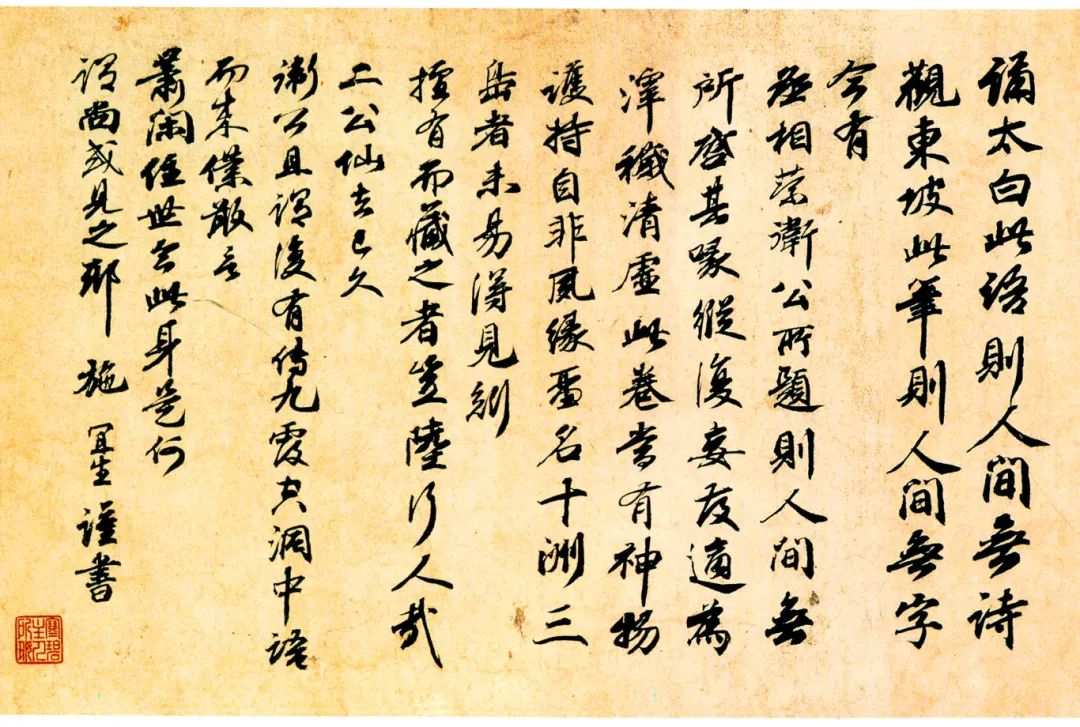 誦太白此語則人間無詩
觀東坡此筆則人間無字
今有
丞相蔡衛公所題則人間無
所啓其喙縱復妄發適為
滓穢清虛此卷當有神物
護持自非緣名十洲三
島者未易得見矧
擅有而藏之者豈陸行人哉
二公仙去已久
衛公且謂後有傳九霞空洞中語
而來僕敢言
蕭閑住世此身是何
謂尚或見之耶 施宜生謹書